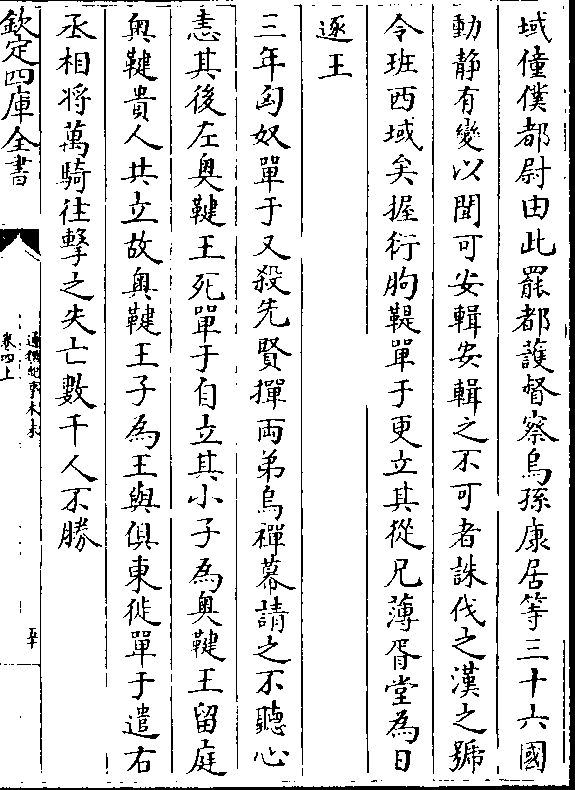 域僮僕都尉由此罷都護督察烏孫康居等三十六國
動静有變以聞可安輯安輯之不可者誅伐之漢之號
令班西域矣握衍朐鞮單于更立其從兄薄胥堂為日
逐王
三年匈奴單于又殺先賢撣両弟烏禪幕請之不聽心
恚其後左奥鞬王死單于自立其小子為奥鞬王留庭
奥鞬貴人共立故奥鞬王子為王與俱東徙單于遣右
丞相将萬騎往擊之失亡數千人不勝
欽定四庫全書
通鑑紀事本末
卷四上